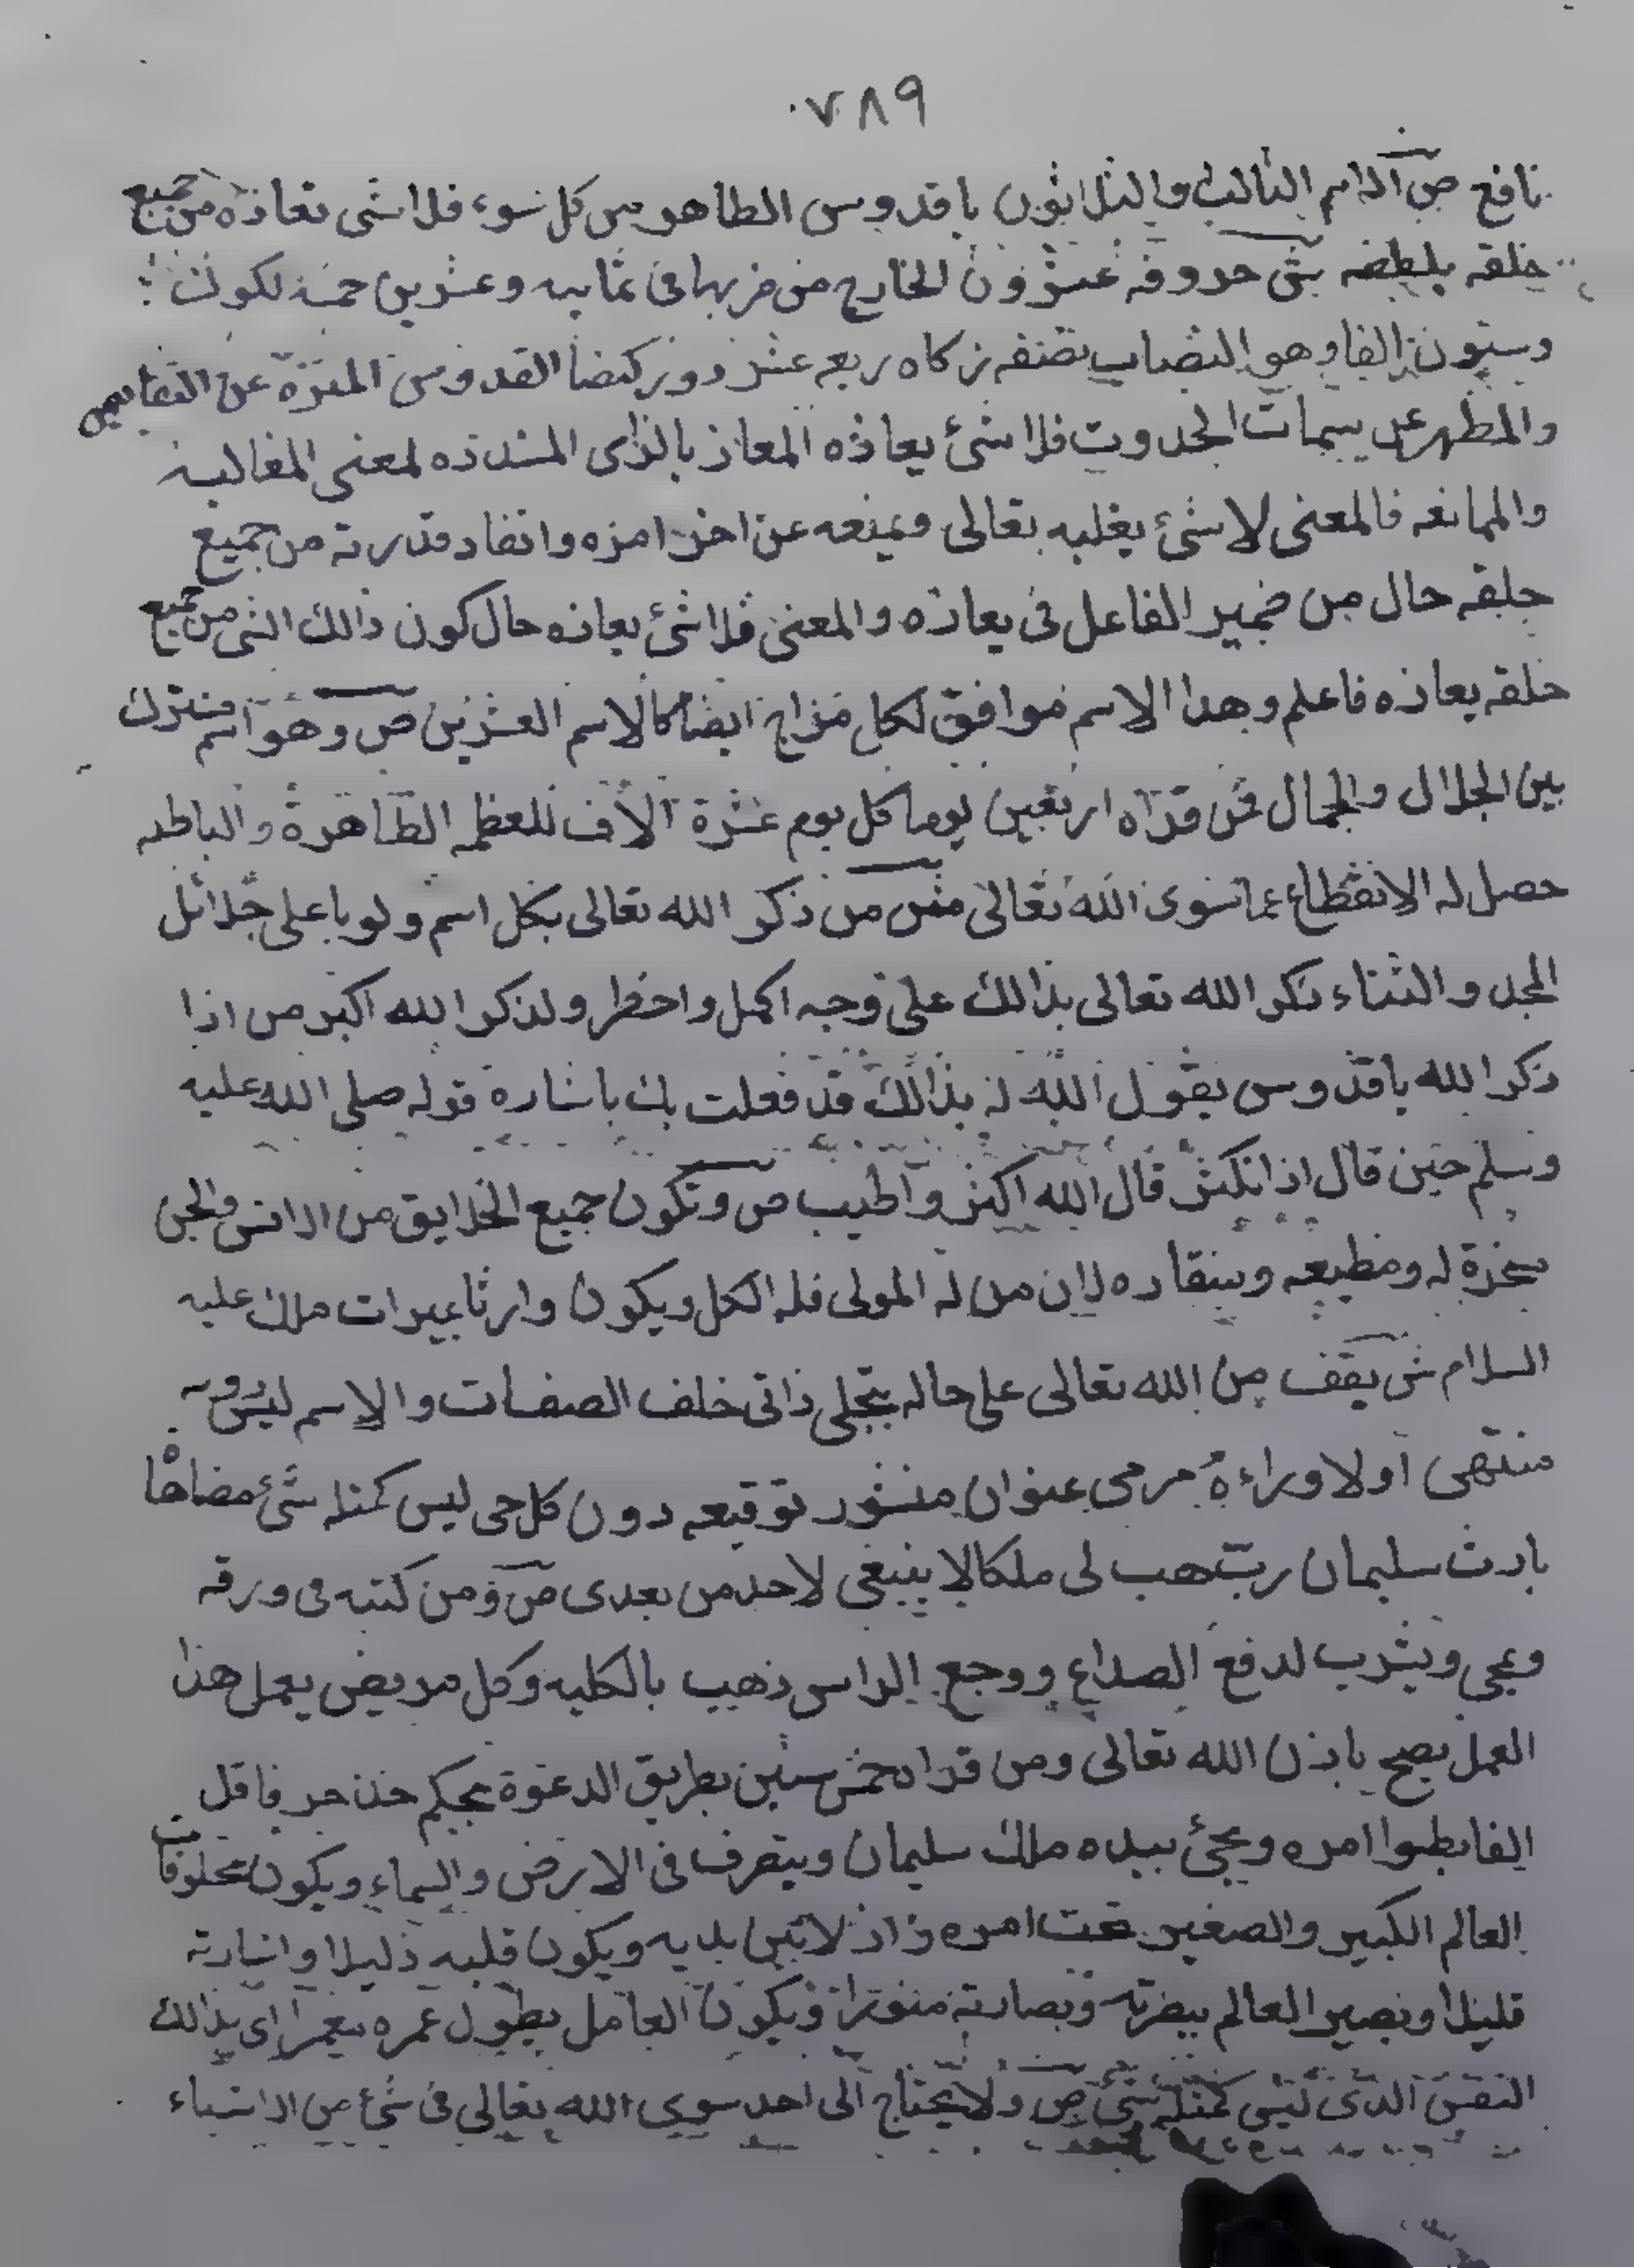 ٧٨٩
نافع ص الاسم الثالث والثلاثون يا قدوس الطاهر من كل سوء فلا شئ يعازه من جميع
خلقه بلطفه حروفه عشرون الخارج من ضربها في ثمانيه وعشرين خمسة لكوك
وستون الفا وهو النصاب نصفه زكاه ربعه عشر دور القدوس المنزه عن النقايص
والمطهر عن سمات الحدوث فلا شئ يعازه المعاز بالزاى المشدده لمعنى المغالبه
والممانعه فالمعنى لا شئ يغلبه تعالى ويمنعه عن امره وانفاد قدرته من جميع
خلقه حال من ضمير الفاعل في يعازه والمعنى فلا شئ يعازه حال كون ذالك الشئ من جميع
خلقه يعازه فاعلم وهذا الاسم موافق لكل مزاج ايضا كالاسم العشرين ص وهو اسم مشترك
بين الجلال والجمال فمن قراه اربعين يوما كل يوم عشرة الاف للعظمه الظاهرة والباطنه
حصل له الانقطاع عما سوى الله تعالى ش من ذكر الله تعالى بكل اسم ولو باعلى جلائل
المجد والثناء ذكر الله تعالى بذالك على وجه اكمل واخطر ولذكر الله اكبر من اذا
ذكر الله يا قدوس يقول الله له بذالك قد فعلت بك باشارة قوله صلى الله عليه
وسلم حين قال اذا نكثر قال الله اكثر واطيب ص وتكون جميع الخلايق من الانس والجن
مسخرة له ومطيعه وينقاده لان من له المولى فله الكل ويكون وارثا بميراث ملك عليه
السلام ش يقف من الله تعالى على حاله بتجلى ذاتى خلف الصفات والاسم ليس دونه
منتهى اولا وراءه مرمى عنوان منشور توقيعه دون كل حى ليس كمثله شئ مضاها
بارث سليمان رب هب لى ملكا لا ينبغى لاحد من بعدى ص ومن كتبه فى ورقه
ويمحى ويشرب لدفع الصداع ووجع الراس ذهب بالكليه وكل مريض يعمل هذا
العمل يصح باذن الله تعالى ومن قراه خمس سنين بطريق الدعوة بحكم خذ حرفا قل
الفا يطيعوا امره ويجئ بيده ملك سليمان ويتصرف فى الارض والسماء ويكون مخلوقات
العالم الكبير والصغير تحت امره بين يديه ويكون قلبه ذليلا واشارته
قليلا ويصير العالم ببصرته وبصارته منورا ويكون العامل بطول عمره بذالك
النفس الذى ليس كمثله شئ ص ولا يحتاج الى احد سوى الله تعالى فى شئ من الاشياء